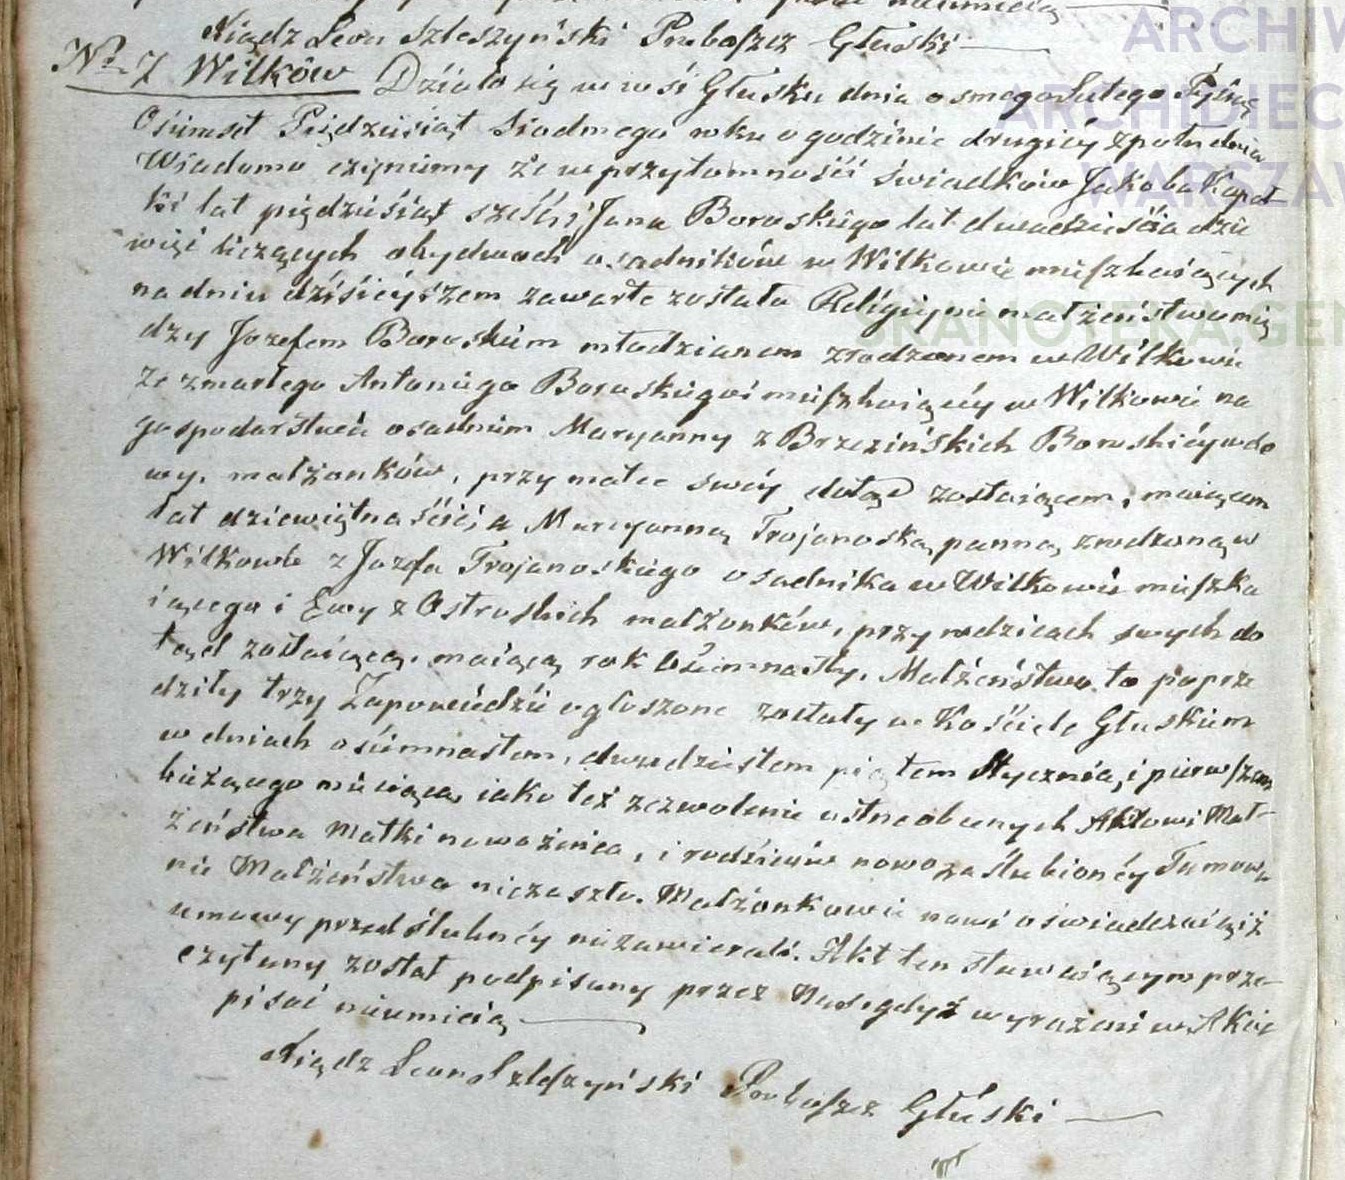 Xiądz Leon Szleszyński Proboszcz Głuski
ARCHIW
ARCHIDIEC
WARSZAW
SKANOTEKA.GEN
No 7 Wilków Działo się we wsi Głusku dnia osmego Lutego Tysiąc
Osiemset Pięćdziesiąt Siodmego roku o godzinie drugiéy z południa
Wiadomo czyniemy że w przytomności świadków Jakoba Kapel
ki lat pięćdziesiąt sześć i Jana Boroskiego lat dwadzieścia dzie
więć liczących obydwóch osadników w Wilkowie mieszkaiących
na dniu dzisieyszem zawarte zostało Religiyne małżeństwo mię
dzy Jozefem Boroskim młodzianem zrodzonem w Wilkowie
ze zmarłego Antoniego Boroskiego i mieszkaiącéy w Wilkowie na
gospodarstwie osadnem Maryanny z Brzezińskich Boroskiéy wdo
wy, małżonków, przy matce swéy dotąd zostaiącem, maiącem
lat dziewiętnaście; a Maryanną Trojanoską panną zrodzoną w
Wilkowie z Jozefa Trojanoskiego osadnika w Wilkowie mieszka
iącego i Ewy z Ostroskich małżonków, przy rodzicach swych do
tąd zostaiącą, maiącą rok ósiemnasty. Małżeństwo to poprze
dziły trzy Zapowiedzie ogłoszone zostały w Kościele Głuskiem
w dniach osiemnastem, dwudziestem piątem Stycznia, i pierwszem
bieżącego miesiąca, iako też zezwolenie ustne obecnych Aktowi Mał-
żeństwa Matki nowożeńca, i rodziców nowozaślubionéy Tamowa
nie Małżeństwa niezaszło. Małżonkowie nowi oświadczaią iż
umowy przedślubnéy niezawierali. Akt ten stawaiącym prze-
czytany został podpisany przez Nas gdyż wyrażeni w Akcie
pisać nieumieią
Xiądz Leon Szleszyński Proboszcz Głuski